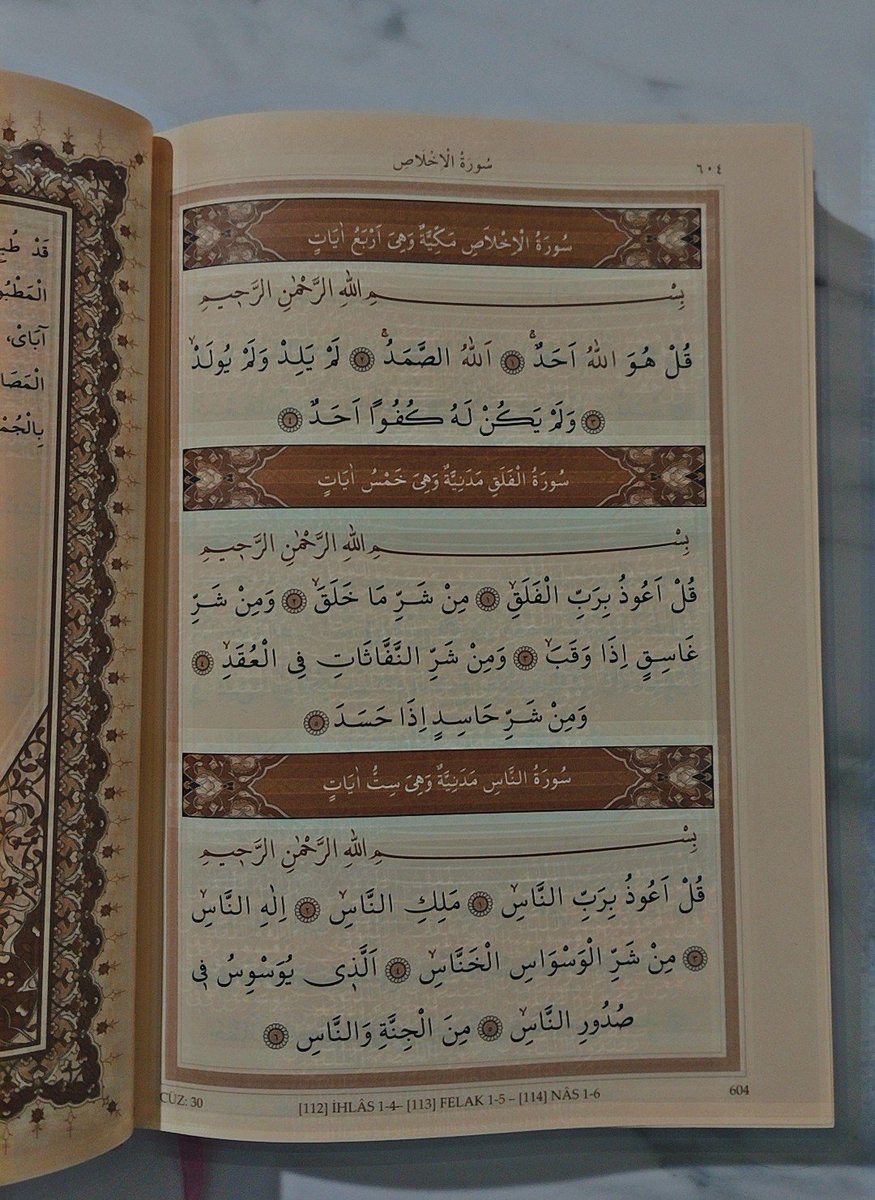 سُورَةُ الْاِخْلَاصِ
٦٠٤
سُورَةُ الْاِخْلَاصِ مَكِّيَّةٌ وَهِىَ اَرْبَعُ اٰيَاتٍ
بِسْمِ اللهِ الرَّحْمٰنِ الرَّحٖيمِ
قُلْ هُوَ اللهُ اَحَدٌۚ ﴿١﴾ اَللهُ الصَّمَدُۚ ﴿٢﴾ لَمْ يَلِدْ وَلَمْ يُولَدْۙ
﴿٣﴾ وَلَمْ يَكُنْ لَهُ كُفُوًا اَحَدٌ ﴿٤﴾
سُورَةُ الْفَلَقِ مَدَنِيَّةٌ وَهِىَ خَمْسُ اٰيَاتٍ
بِسْمِ اللهِ الرَّحْمٰنِ الرَّحٖيمِ
قُلْ اَعُوذُ بِرَبِّ الْفَلَقِۙ ﴿١﴾ مِنْ شَرِّ مَا خَلَقَۙ ﴿٢﴾ وَمِنْ شَرِّ
غَاسِقٍ اِذَا وَقَبَۙ ﴿٣﴾ وَمِنْ شَرِّ النَّفَّاثَاتِ فِى الْعُقَدِۙ ﴿٤﴾
وَمِنْ شَرِّ حَاسِدٍ اِذَا حَسَدَ ﴿٥﴾
سُورَةُ النَّاسِ مَدَنِيَّةٌ وَهِىَ سِتُّ اٰيَاتٍ
بِسْمِ اللهِ الرَّحْمٰنِ الرَّحٖيمِ
قُلْ اَعُوذُ بِرَبِّ النَّاسِۙ ﴿١﴾ مَلِكِ النَّاسِۙ ﴿٢﴾ اِلٰهِ النَّاسِۙ
﴿٣﴾ مِنْ شَرِّ الْوَسْوَاسِ الْخَنَّاسِۙ ﴿٤﴾ اَلَّذٖى يُوَسْوِسُ فٖى
صُدُورِ النَّاسِۙ ﴿٥﴾ مِنَ الْجِنَّةِ وَالنَّاسِ ﴿٦﴾
CÜZ: 30
[112] İHLÂS 1-4– [113] FELAK 1-5 – [114] NÂS 1-6
604
قَدْ
آبَائ،